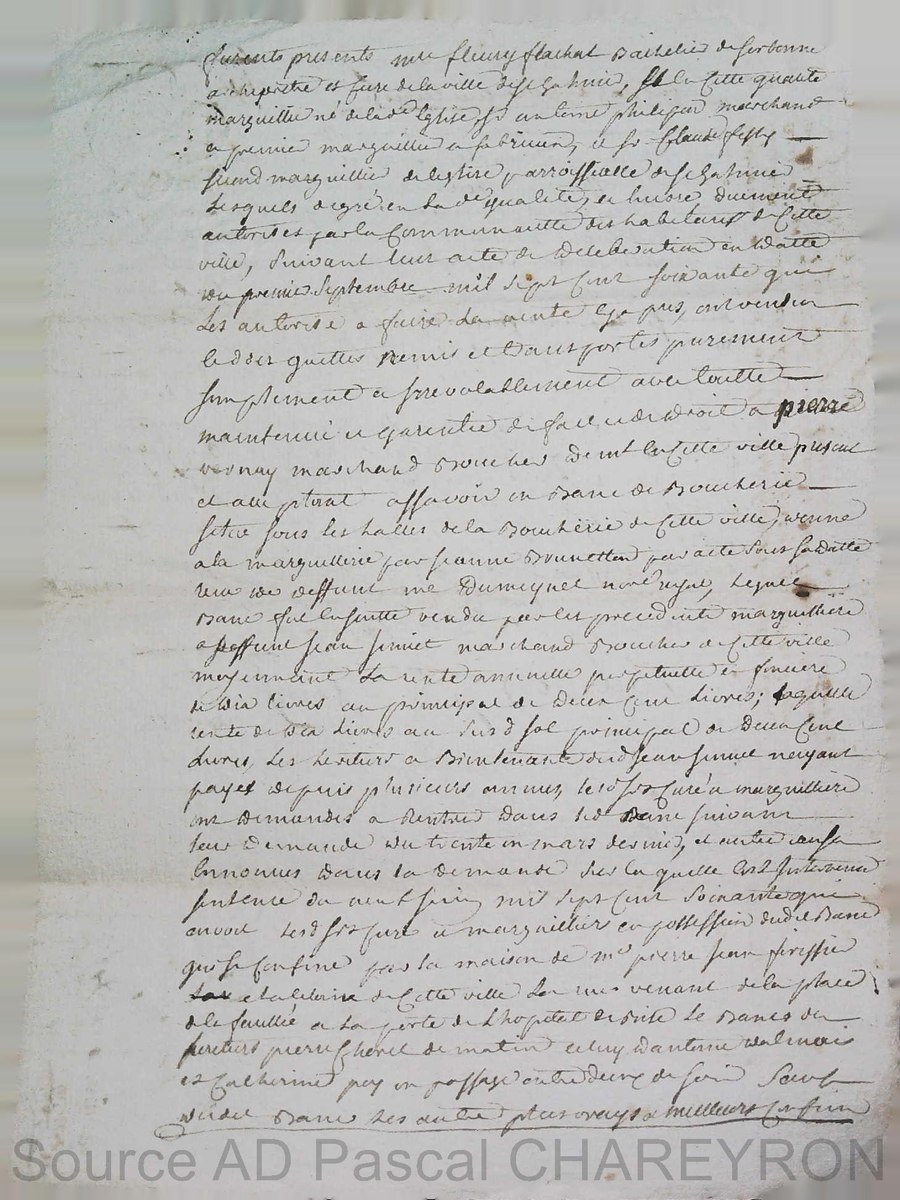 furents presents mre fleury flachat Bachelier de sorbonne
archiprêtre et cure de la ville de st chamond, en cette qualite
marguillier né de lade Eglise, sr antoine philipon marchand
et premier marguillier et fabricien, et sr Claude
second marguillier de leglise parroissielle de st chamond
Lesquels de gré en lade qualité, et encore duement
autorises par la Communautté des habitans de Cette
ville, suivant leur acte de Deliberation en datte
du premier Septembre mil sept cent soixante qui
Les autorise a faire La vente cy apres, ont vendu
cedder quittes remis et transportes purement
simplement et irrevocablement avec toutte
maintenue et garentie de fait et de Droit a pierre
vernay marchand Boucher demt en Cette ville present
et acceptant assavoir un Banc de Boucherie
sittué sous les halles de la Boucherie de Cette ville, donné
a la marguillerie par jeanne par acte sous sa datte
recu de deffunt me Dumeynet nore royal, Lequel
Banc fut ensuitte vendu par les precedents marguilliers
a deffunt jean jimet marchand Boucher de Cette ville
moyennant La rente annuelle perpetuelle et fonciere
de Dix livres au principal de Deux cent Livres; Laquelle
rente de Dix Livres au susd sol principal de Deux Cent
Livres, Les heritiers et Bientenants dud jean jimet nayant
payes depuis plusieurs annees, lesd srs Curé et marguilliers
ont Demandes a Rentrer Dans led Banc suivant
leur Demande du trente un mars dernier, et autre
Ennoncés Dans la demande sur laquelle Est Intervenu
sentence du neuf juin mil sept cent soixante qui
envoit lesd srs Curé et marguilliers en possession dudit Banc
qui se Confine par la maison de me pierre jean
de Cette ville La rue venant de la place
de la feuillée a La porte de L'hopital de bise Le Bancs des
heritiers pierre de matin celuy dantoine
et Catherine un passage entre deux de soir Sauf
dudit Banc Les autres plus vrays et meilleurs Confins